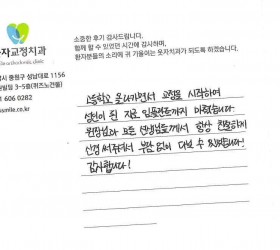 소중한 후기 감사드립니다.
함께 할 수 있었던 시간에 감사하며,
환자분들의 소리에 귀 기울이는 웃자치과가 되도록 하겠습니다.
자교정치과
orthodontic clinic
시 중원구 성남대로 1156
빌딩 3-5층(퀴즈노건물)
606 0282
smile.co.kr
고등학교 올라가면서 교정을 시작하여
성인이 된 지금 임플란트까지 마쳤습니다
원장님과 모든 선생님들께서 항상 친절하게
신경 써주셔서 부담 없이 다닐 수 있었습니다!
감사합니다!